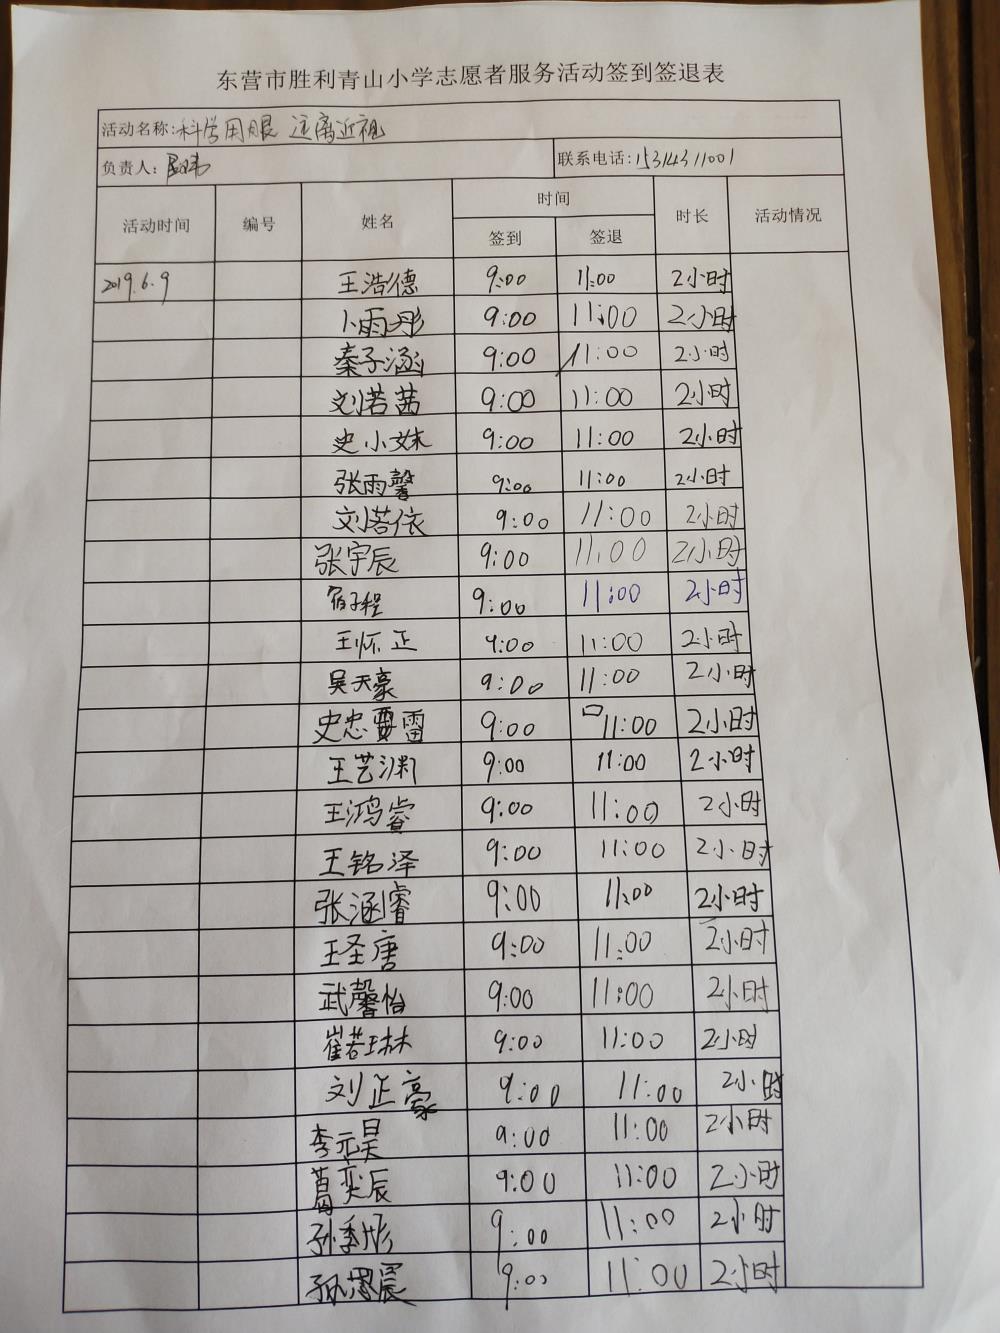 东营市胜利青山小学志愿者服务活动签到签退表
活动名称:科学用眼 远离近视
负责人:
联系电话:15314311001
活动时间 编号 姓名 时间 时长 活动情况
签到 签退
2019.6.9 王浩德 9:00 11:00 2小时
卜雨彤 9:00 11:00 2小时
秦子涵 9:00 11:00 2小时
刘若茜 9:00 11:00 2小时
史小妹 9:00 11:00 2小时
张雨馨 9:00 11:00 2小时
刘若依 9:00 11:00 2小时
张宇辰 9:00 11:00 2小时
9:00 11:00 2小时
王怀正 9:00 11:00 2小时
吴天豪 9:00 11:00 2小时
史忠 雷 9:00 11:00 2小时
王艺渊 9:00 11:00 2小时
王鸿睿 9:00 11:00 2小时
王铭泽 9:00 11:00 2小时
张涵睿 9:00 11:00 2小时
王圣唐 9:00 11:00 2小时
武馨怡 9:00 11:00 2小时
崔若琳 9:00 11:00 2小时
刘正豪 9:00 11:00 2小时
李元昊 9:00 11:00 2小时
葛奕辰 9:00 11:00 2小时
孙季彤 9:00 11:00 2小时
9:00 11:00 2小时